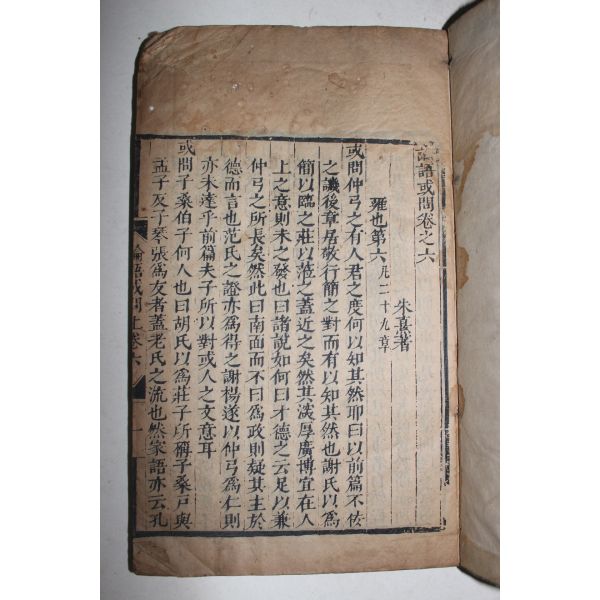 論語或問卷之六
朱熹著
雍也第六凡二十九章
或問仲弓之有人君之度何以知其然耶曰以前篇不佞
之譏後章居敬行簡之對而有以知其然也謝氏以爲
簡以臨之莊以莅之蓋近之矣然其深厚廣博宜在人
上之意則未之發也曰諸說如何曰才德之云足以兼
仲弓之所長矣然此曰南面而不曰爲政則疑其主於
德而言也范氏之證亦爲得之謝楊遂以仲弓爲仁則
亦未達乎前篇夫子所以對或人之文意耳
或問子桑伯子何人也曰胡氏以爲莊子所稱子桑戶與
孟子反子琴張爲友者蓋老氏之流也然家語亦云孔
論語或問上卷六
一